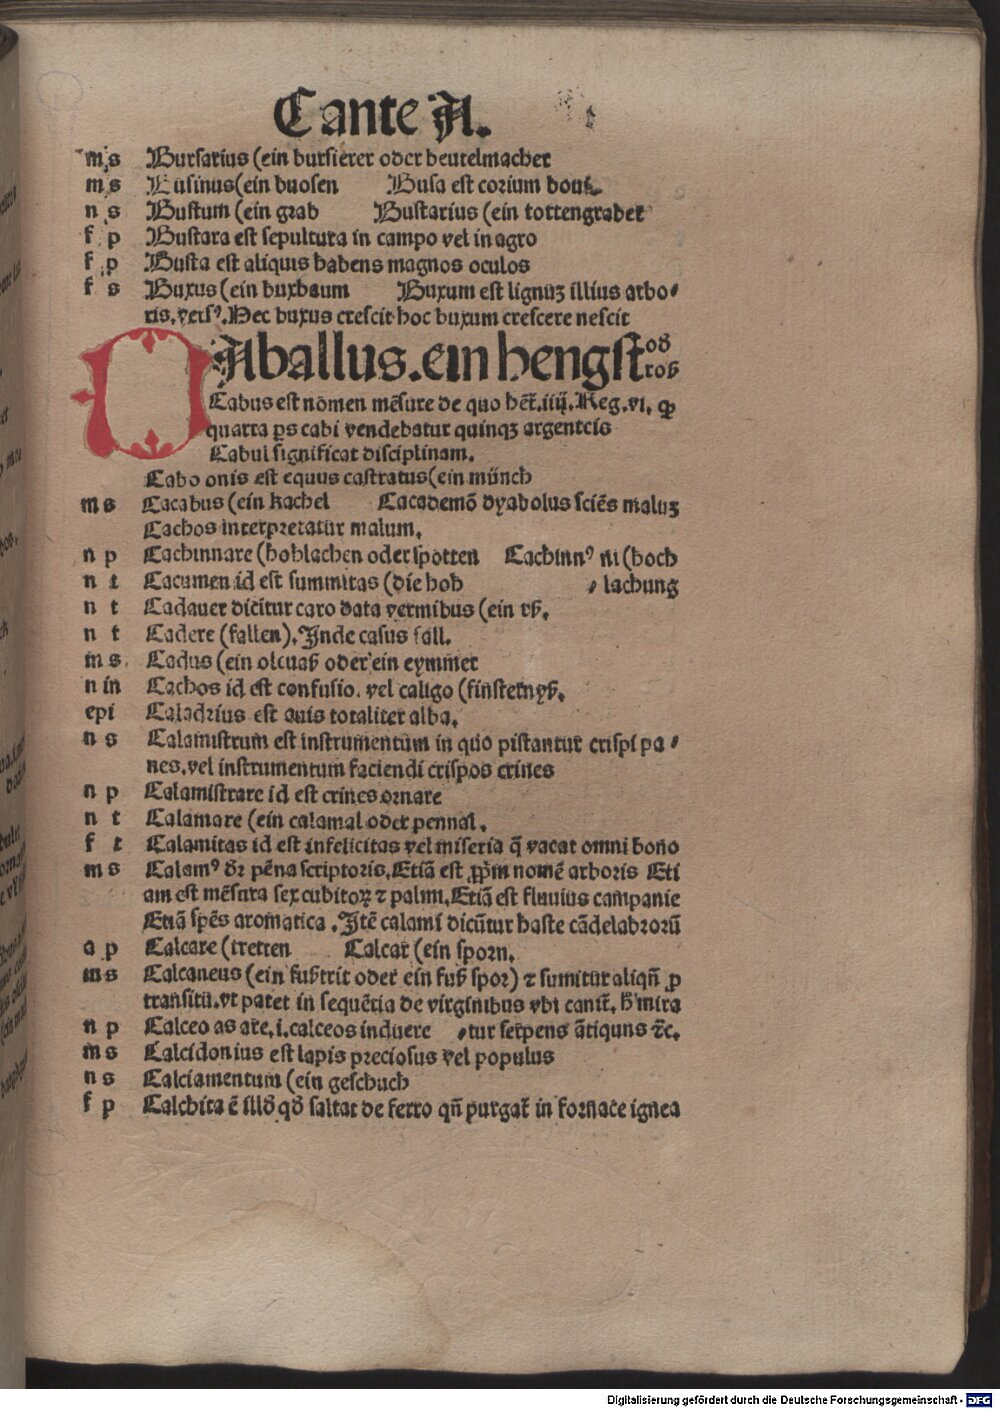 C ante A.
m s Bursarius (ein bursierer oder beutelmacher
m s Businus (ein buosen Busa est corium boui
n s Bustum (ein grab Bustarius (ein tottengraber
f p Bustara est sepultura in campo vel in agro
f p Busta est aliquis habens magnos oculos
f s Buxus (ein buxbaum Buxum est lignuʒ illius arbo⸗
ris. versꝰ. Hec buxus crescit hoc buxum crescere nescit
CAballus. ein hengst od̕ roß
Cabus est nōmen mēsure de quo het̄. iiij. Reg. vi. ꝙ
quarta ꝑs cabi vendebatur quinqʒ argenteis
Cabul significat disciplinam.
Cabo onis est equus castratus (ein münch
m s Cacabus (ein kachel Cacademō dyabolus sciēs maluʒ
Cachos interpretatur malum.
n p Cachinnare (hohlachen oder spotten Cachinnꝰ ni (hoch
n t Cacumen id est summitas (die hoh ⸗ lachung
n t Cadauer dicitur caro data vermibus (ein rß.
n t Cadere (fallen). Inde casus fall.
m s Cadus (ein oleuaß oder ein eymmer
n in Cachos id est confusio. vel caligo (finsternyß.
epi Caladrius est auis totaliter alba.
n s Calamistrum est instrumentum in quo pistantur crispi pa⸗
nes. vel instrumentum faciendi crispos crines
n p Calamistrare id est crines ornare
n t Calamare (ein calamal oder pennal.
f t Calamitas id est infelicitas vel miseria q̄ vacat omni bono
m s Calamꝰ dr̄ pēna scriptoris. Etiā est ꝓpriū nomē arboris Eti
am est mēsura sex cubitoꝝ ⁊ palmi. Etiā est fluuius campanie
Etiā spēs aromatica. Itē calami dicūtur haste cādelabrorū
a p Calcare (tretten Calcar (ein sporn.
m s Calcaneus (ein fußtrit oder ein fuß spor) ⁊ sumitur aliqn̄ ꝓ
transitu. vt patet in sequētia de virginibus vbi canit̄. h̄ mira
n p Calceo as are. i. calceos induere ⸗tur serpens ātiquns ⁊c̄.
m s Calcidonius est lapis preciosus vel populus
n s Calciamentum (ein geschuch
f p Calchita ē illd̕ qd̕ saltat de ferro qn̄ purgat̄ in fornace ignea
Digitalisierung gefördert durch die Deutsche Forschungsgemeinschaft - DFG